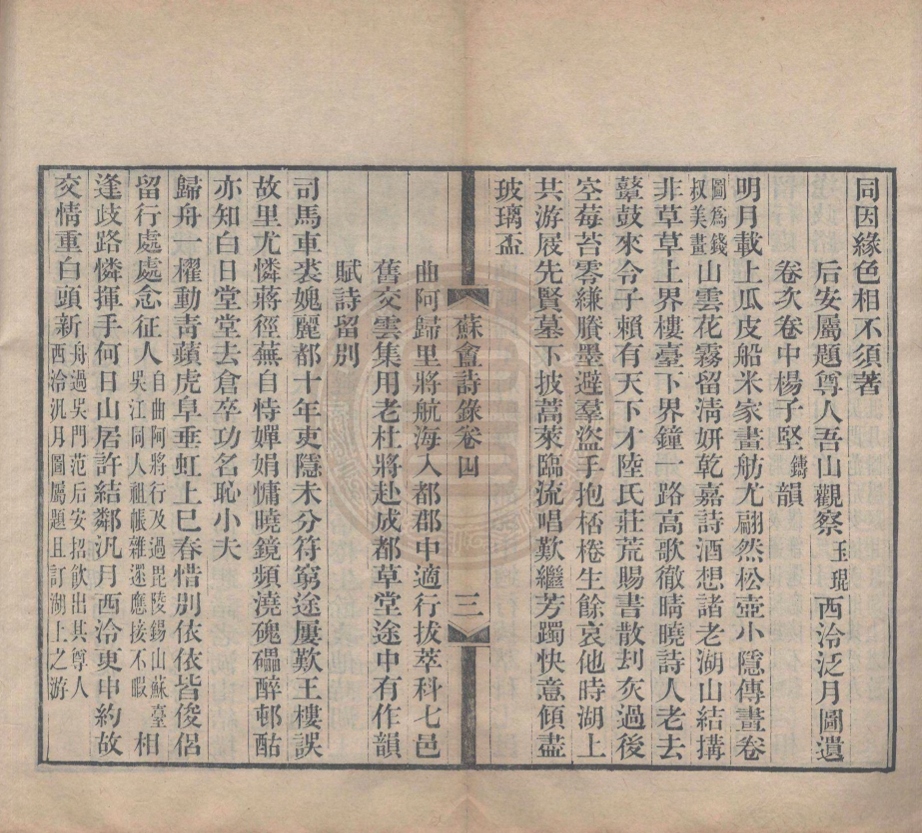 同因緣色相不須著
后安屬題尊人吾山觀察玉琨西泠泛月圖遺
卷次卷中楊子堅鑄韻
明月載上瓜皮船米家畫舫尤翩然松壺小隱傳畫卷
圖為錢叔美畫山雲花霧留清妍乾嘉詩酒想諸老湖山結搆
非草草上界樓臺下界鐘一路高歌徹晴曉詩人老去
鼙鼓來令子賴有天下才陸氏莊荒賜書散刦灰過後
空莓苔零縑賸墨避羣盜手抱桮棬生餘哀他時湖上
共游屐先賢墓下披蒿萊臨流唱歎繼芳躅快意傾盡
玻璃盃
曲阿歸里將航海入都郡中適行拔萃科七邑
舊交雲集用老杜將赴成都草堂途中有作韻
賦詩留別
司馬車裘媿麗都十年吏隱未分符窮途屢歎王樓誤
故里尤憐蔣徑蕪自恃嬋娟慵曉鏡頻澆磈礧醉邨酤
亦知白日堂堂去倉卒功名恥小夫
歸舟一櫂動青蘋虎阜垂虹上巳春惜別依依皆俊侶
留行處處念征人自曲阿將行及過毘陵錫山蘇臺吳江同人祖帳雜遝應接不暇相
逢歧路憐揮手何日山居許結鄰汎月西泠更申約故
交情重白頭新舟過吳門范后安招飲出其尊人西泠汎月圖屬題且訂湖上之游
蘇盦詩錄卷四
三